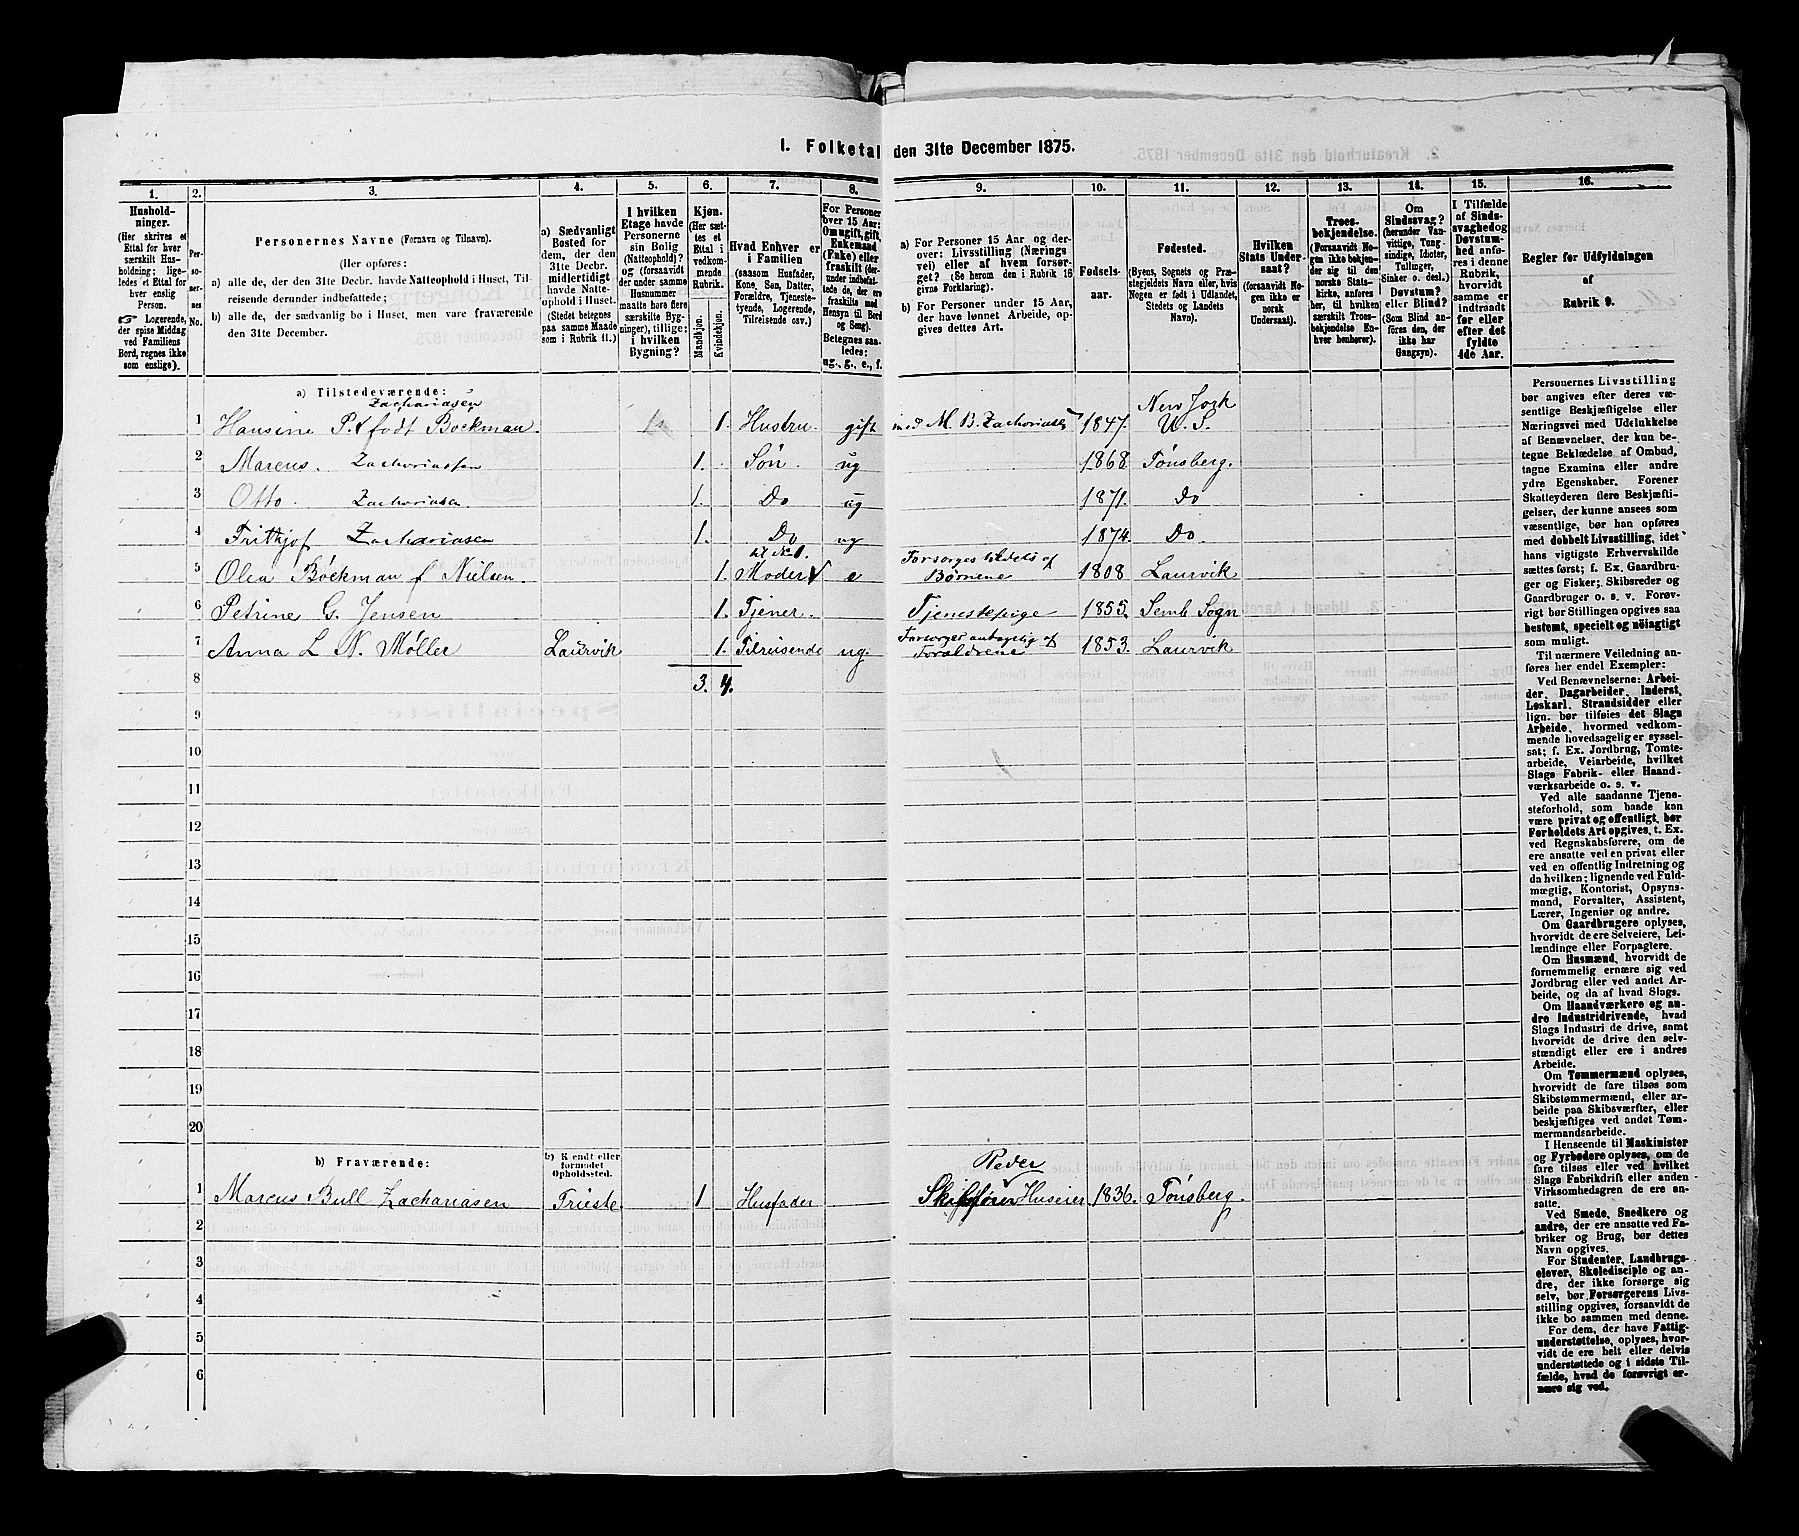 1. Folketal den 31te December 1875.
1. 2. 3. 4. 5. 6. 7. 8. 9. 10. 11. 12. 13. 14. 15. 16.
Hushold-
ninger.
(Her skrives et
Ettal for hver
særskilt Hus-
holdning; lige-
ledes et Ettal for
hver enslig
Person.
☞ Logerende,
der spise Middag
ved Familiens
Bord, regnes ikke
som enslige).
Per-
so-
ner-
nes
No.
Personernes Navne (Fornavn og Tilnavn).
(Her opføres:
a) alle de, der den 31te Decbr. havde Natteophold i Huset, Til-
reisende derunder indbefattede;
b) alle de, der sædvanlig bo i Huset, men vare fraværende
den 31te December.
a) Sædvanligt
Bosted for
dem, der den
31te Decbr.
midlertidigt
havde Natte-
ophold i Huset.
(Stedet betegnes
paa samme Maade
som i Rubrik 11.)
I hvilken
Etage havde
Personerne
sin Bolig
(Natteophold)?
og (forsaavidt
der under samme
Husnummer
maatte høre flere
særskilte Byg-
ninger), tillige:
i hvilken
Bygning?
Kjøn.
(Her sæt-
tes et
Ettal i
vedkom-
mende
Rubrik.
Mandkjøn.
Kvindekjøn.
Hvad Enhver er
i Familien
(saasom Husfader,
Kone, Søn, Datter,
Forældre, Tjeneste-
tyende, Logerende,
Tilreisende osv.)
For Personer
over 15 Aar:
Om ugift, gift,
Enkemand
(Enke) eller
fraskilt (der-
under indbefat-
tede de, der ere
fraskilte med
Hensyn til Bord
og Seng).
Betegnes saa-
ledes:
ug., g., e., f.
a) For Personer 15 Aar og der-
over: Livsstilling (Nærings
vei) eller af hvem forsør-
get? (Se herom den i Rubrik 16
givne Forklaring).
b) For Personer under 15 Aar,
der have lønnet Arbeide, op-
gives dettes Art.
Fødsels-
aar.
Fødested.
(Byens, Sognets og Præ-
stegjeldets Navn eller, hvis
Nogen er født i Udlandet,
Stedets og Landets
Navn).
Hvilken
Stats Under-
saat?
(forsaavidt No-
gen ikke er
norsk
Undersaat).
Troes-
bekjendelse.
(Forsaavidt No-
gen ikke bekjen-
der sig til den
norske Stats-
kirke, anføres
her, til hvilken
særskilt Troes-
bekjendelse En-
hver henhører).
Om
Sindssvag?
(herunder Van-
vittige, Tung-
sindige, Idioter,
Tullinger,
Sinker o. desl.)
Døvstum?
eller Blind?
(Som Blind an-
føres den, der
ikke har
Gangsyn).
I Tilfælde
af Sinds-
svaghed og
Døvstum-
hed anfø-
res i denne
Rubrik,
hvorvidt
samme er
indtraadt
før eller
efter det
fyldte
4de Aar.
Regler for Udfyldningen
af
Rubrik 9.
a) Tilstedeværende:
Zachariasen
New York
1 Hansine P. f født Bockman. 1. Hustru. gift med M. B. Zachariasen 1847. U. S.
2 Marcus. Zachariasen 1. Søn. ug 1868. Tønsberg.
3 Otto. Zachariasen 1. Do ug 1871. Do
4 Frithjof Zachariasen 1. Do ug 1874. Do.
5 Olea Bøckman f Nielsen. 1. Moder e Forsørges af Børnene 1808 Laurvik
6 Petrine G. Jensen 1. Tjener. Tjenestepige 1855. Semb Sogn
7 Anna L N. Møller Laurvik 1. Tilreisende ug. Forsørges af Forældrene 1853. Laurvik
8 3. 4.
9
10
11
12
13
14
15
16
17
18
19
20
b) Fraværende:
b) Kjendt eller
formodet
Opholdssted.
Reder
1 Marcus Bull Zachariasen Trieste. 1 Husfader Skibsfører Huseier 1836. Tønsberg.
2
3
4
5
6
Personernes Livsstilling
bør angives efter deres væ-
sentlige Beskjæftigelse eller
Næringsvei med Udelukkelse
af Benævnelser, der kun be-
tegne Beklædelse af Ombud,
tagne Examina eller andre
ydre Egenskaber. Forener
Skatteyderen flere Beskjæfti-
gelser, der kunne ansees som
væsentlige, bør han opføres
med dobbelt Livsstilling, idet
hans vigtigste Erhvervskilde
sættes først; f. Ex. Gaardbru-
ger og Fisker; Skibsreder og
Gaardbruger o. s. v. Forøv-
rigt bør Stillingen opgives saa
bestemt, specielt og nøiagtigt
som muligt.
Til nærmere Veiledning an-
føres her endel Exempler:
Ved Benævnelserne: Arbei-
der, Dagarbeider, Inderst,
Løskarl, Strandsidder eller
lign. bør tilføies det Slags
Arbeide, hvormed vedkom-
mende hovedsagelig er syssel-
sat; f. Ex. Jordbrug, Tomte-
arbeide, Veiarbeide, hvilket
Slags Fabrik- eller Haand-
værksarbeide o. s. v.
Ved alle saadanne Tjene-
steforhold, som baade kan
være privat og offentligt, bør
Forholdets Art opgives, t. Ex.
ved Regnskabsførere, om de
ere ansatte ved en privat eller
ved en offentlig Indretning og
da hvilken; lignende ved Fuld-
mægtig, Kontorist, Opsyns-
mand, Forvalter, Assistent,
Lærer, Ingeniør og andre.
Om Gaardbrugere oplyses,
hvorvidt de ere Selveiere, Lei-
lændinge eller Forpagtere.
Om Husmænd, hvorvidt de
fornemmelig ernære sig ved
Jordbrug eller ved andet Ar-
beide, og da af hvad Slags.
Om Haandværkere og an-
dre Industridrivende, hvad
Slags Industri de drive, samt
hvorvidt de drive den selv-
stændigt eller ere i andres
Arbeide.
Om Tømmermænd oplyses,
hvorvidt de fare tilsøs som
Skibstømmermænd, eller ar-
beide paa Skibsværfter, eller
beskjæftiges ved andet Tøm-
mermandsarbeide.
I Henseende til Maskinister
og Fyrbødere oplyses, om de
fare tilsøs eller ved hvilket
Slags Fabrikdrift eller anden
Virksomhedsgren de ere an-
satte.
Ved Smede, Snedkere og
andre, der ere ansatte ved Fa-
briker og Brug, bør dettes
Navn opgives.
For Studenter, Landbrugs-
elever, Skoledisciple og an-
dre, der ikke forsørge sig
selv, bør Forsørgerens Livs-
stilling opgives, forsaavidt de
ikke bo sammen med denne.
For dem, der have Fattig-
understøttelse, oplyses, hvor-
vidt de ere helt eller delvis
understøttede og i sidste Til-
fælde, hvad de forøvrigt er-
nære sig ved.